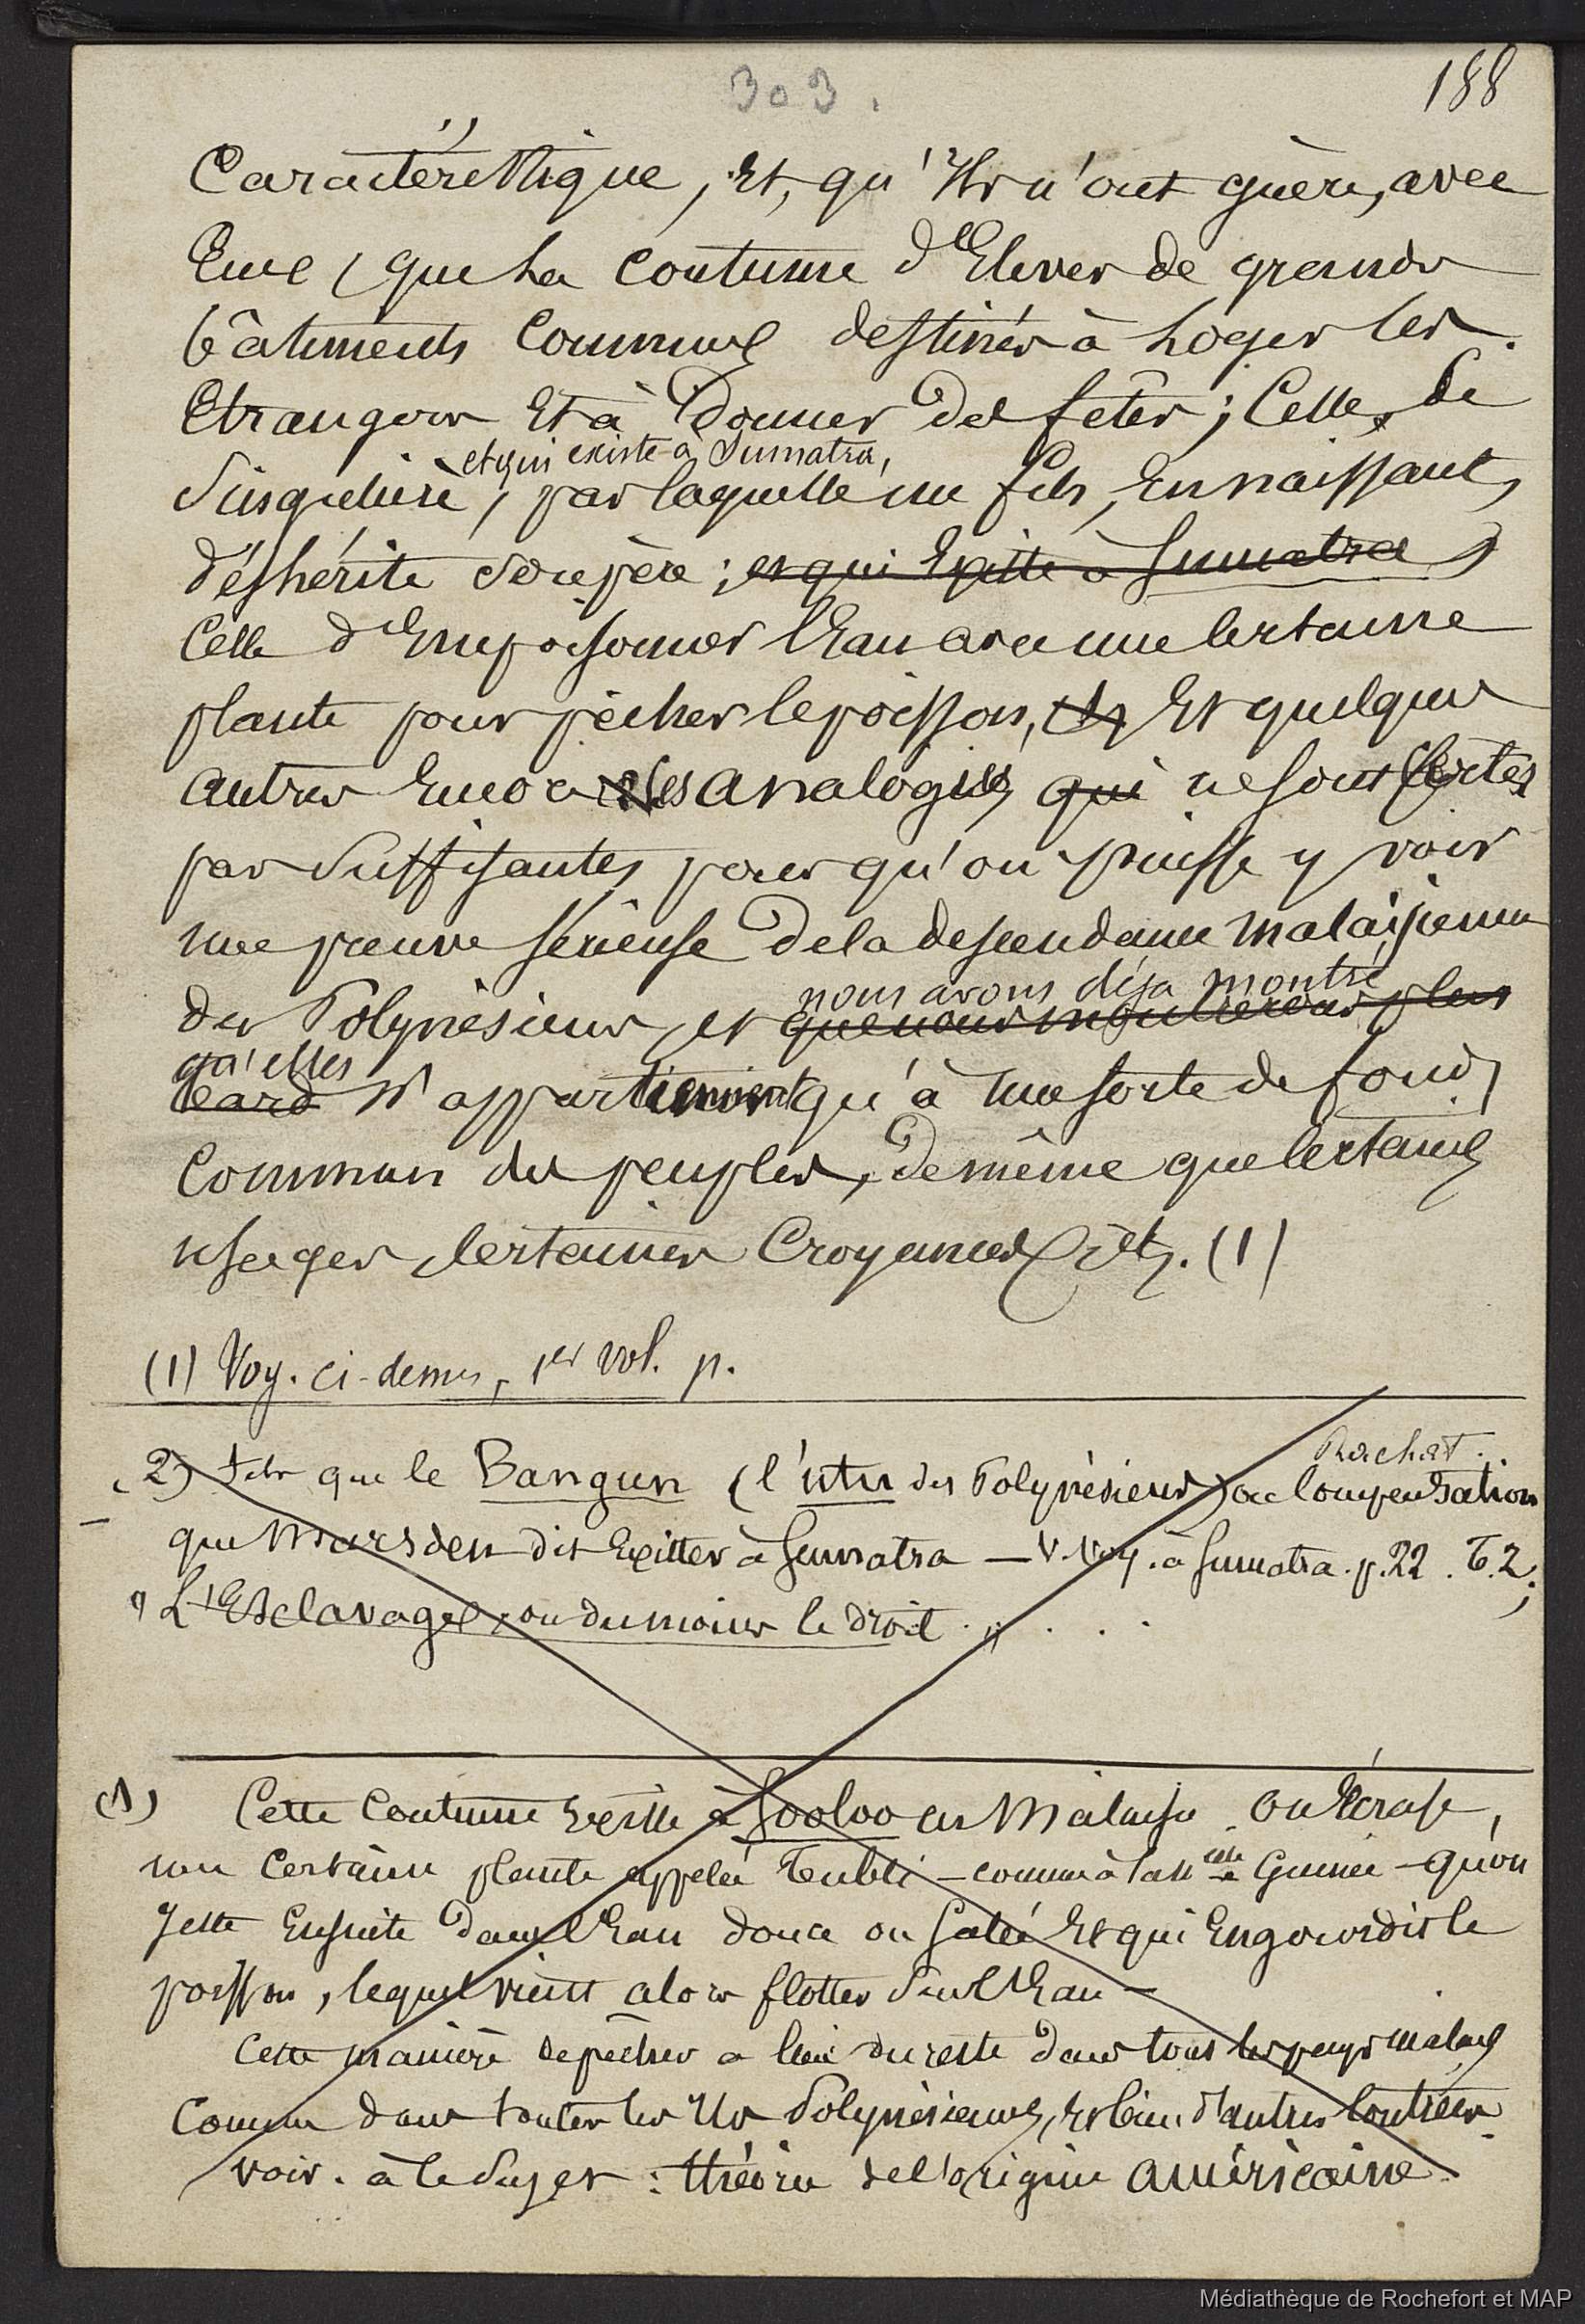 303.
188
Caractéristique, Et, qu'Ils n'ont guère, avec
Eux, que la coutume d'Elever de grands
bâtiments communs destinés à loger les
Etrangers Et à Donner des fêtes; Celle, si
et qui existe à Sumatra,
singulière, par laquelle un fils, En naissant,
déshérite son père; et qui Existe à Sumatra
Celle d'Empoisonner l'Eau avec une certaine
plante pour pêcher le poisson, Et quelques
autres Encore analogies qui ne sont certes
pas suffisantes pour qu'on puisse y voir
une preuve sérieuse de la descendance malaisienne
nous avons déja montré
des Polynésiens, et que nous montrerons plus
qu'elles
tard n'appartiennent qu'à une sorte de fond
commun des peuples, de même que certains
usages, certaines Croyances, Etc. (1)
(1) Voy. ci-dessus, 1er vol. p.
Rachat.
(2) tels que le Bangun (l'utu des Polynésiens) ou compensation
que Marsden dit Exister à Sumatra — V. Voy. à Sumatra. p. 22. T. 2;
L'Esclavage, ou du moins le droit . . . .
(1) Cette coutume Existe à Sooloo en Malaisie. On Ecrase,
une certaine plante appelée Tubli — comme à la Nlle Guinée — qu'on
Jette Ensuite dans l'Eau douce ou salée Et qui Engourdit le
poisson, lequel vient alors flotter sur l'Eau —
Cette manière de pêcher a lieu du reste dans tous les pays malais
comme dans toutes les Iles Polynésiennes, Et bien d'autres contrées.
voir. à ce sujet : théorie de l'origine américaine.
Médiathèque de Rochefort et MAP